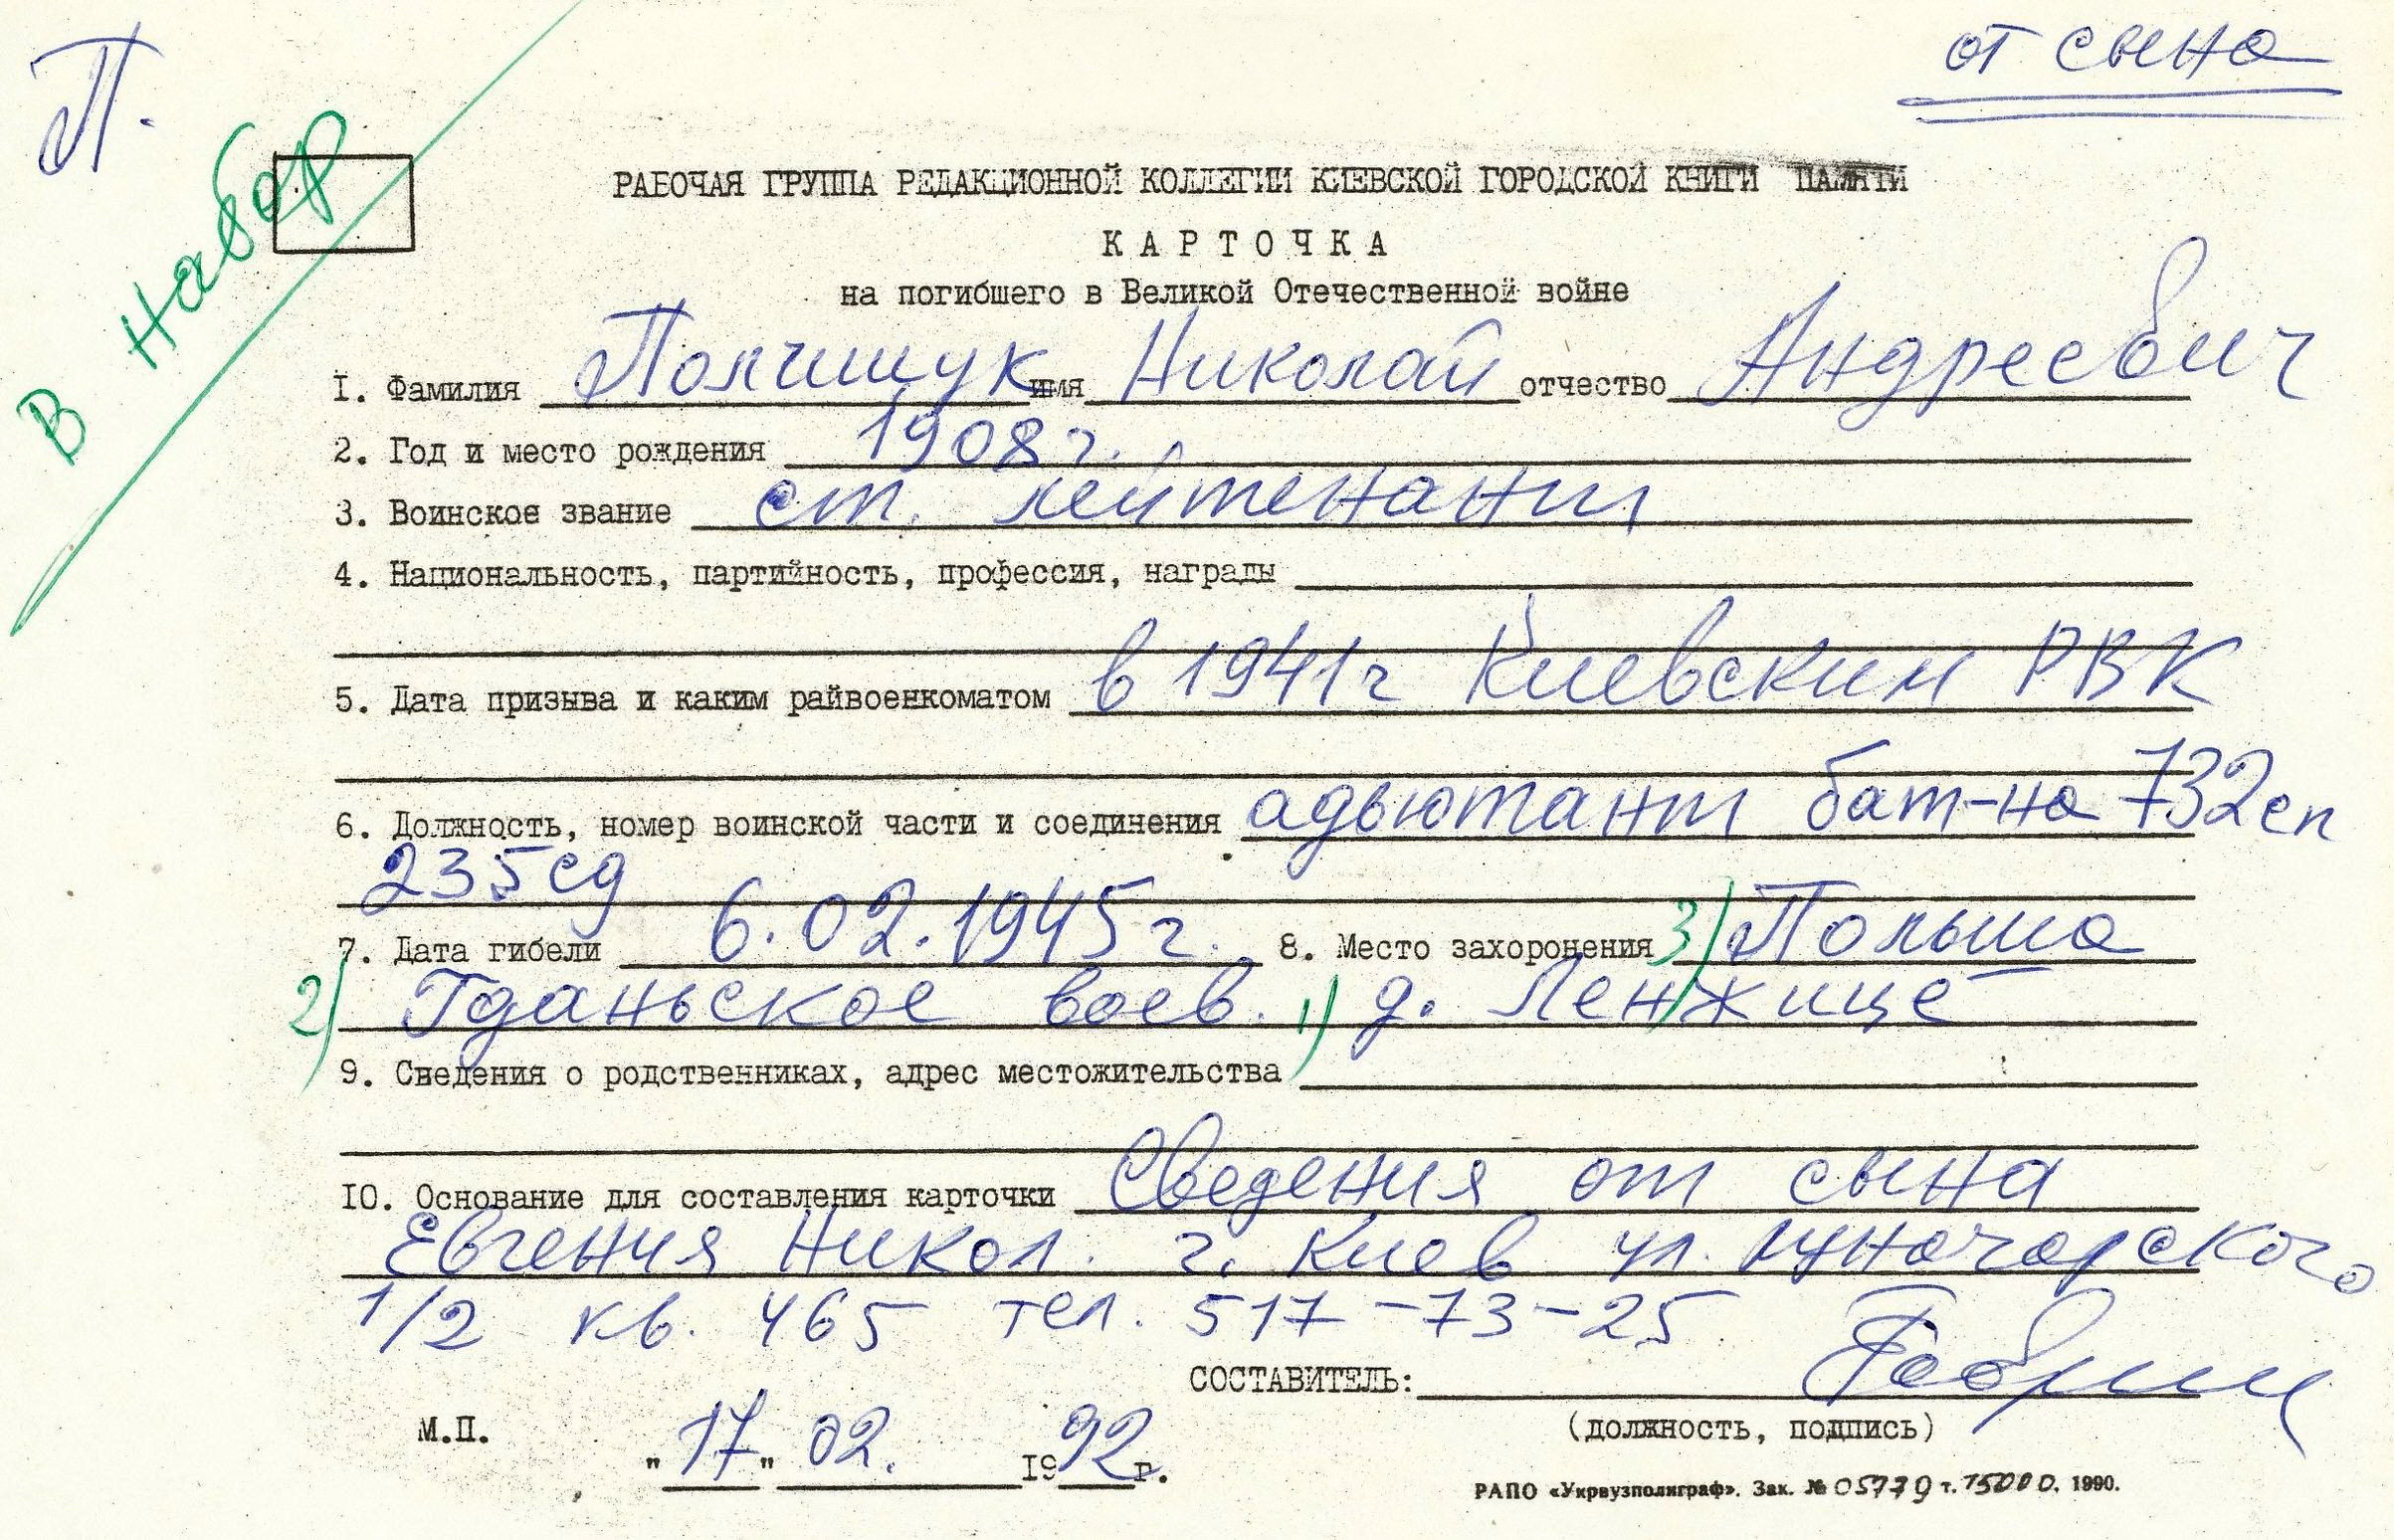 П.
от сына
В набор
РАБОЧАЯ ГРУППА РЕДАКЦИОННОЙ КОЛЛЕГИИ КИЕВСКОЙ ГОРОДСКОЙ КНИГИ ПАМЯТИ
КАРТОЧКА
на погибшего в Великой Отечественной войне
I. Фамилия Полищук имя Николай отчество Андреевич
2. Год и место рождения 1908 г.
3. Воинское звание ст. лейтенант
4. Национальность, партийность, профессия, награды
5. Дата призыва и каким райвоенкоматом в 1941г Киевским РВК
6. Должность, номер воинской части и соединения адьютант бат-на 732 сп
235 сд
7. Дата гибели 6.02.1945 г. 8. Место захоронения 3) Польша
2) Гданьское воев. 1) д. Ленжице
9. Сведения о родственниках, адрес местожительства
IO. Основание для составления карточки Сведения от сына
Евгения Никол. г. Киев ул. Луначарского
1/2 кв. 465 тел. 517-73-25
СОСТАВИТЕЛЬ:
(должность, подпись)
М.П. "17" 02. 1992 г.
РАПО «Укрвузполиграф». Зак. № 05779 т. 15000. 1990.